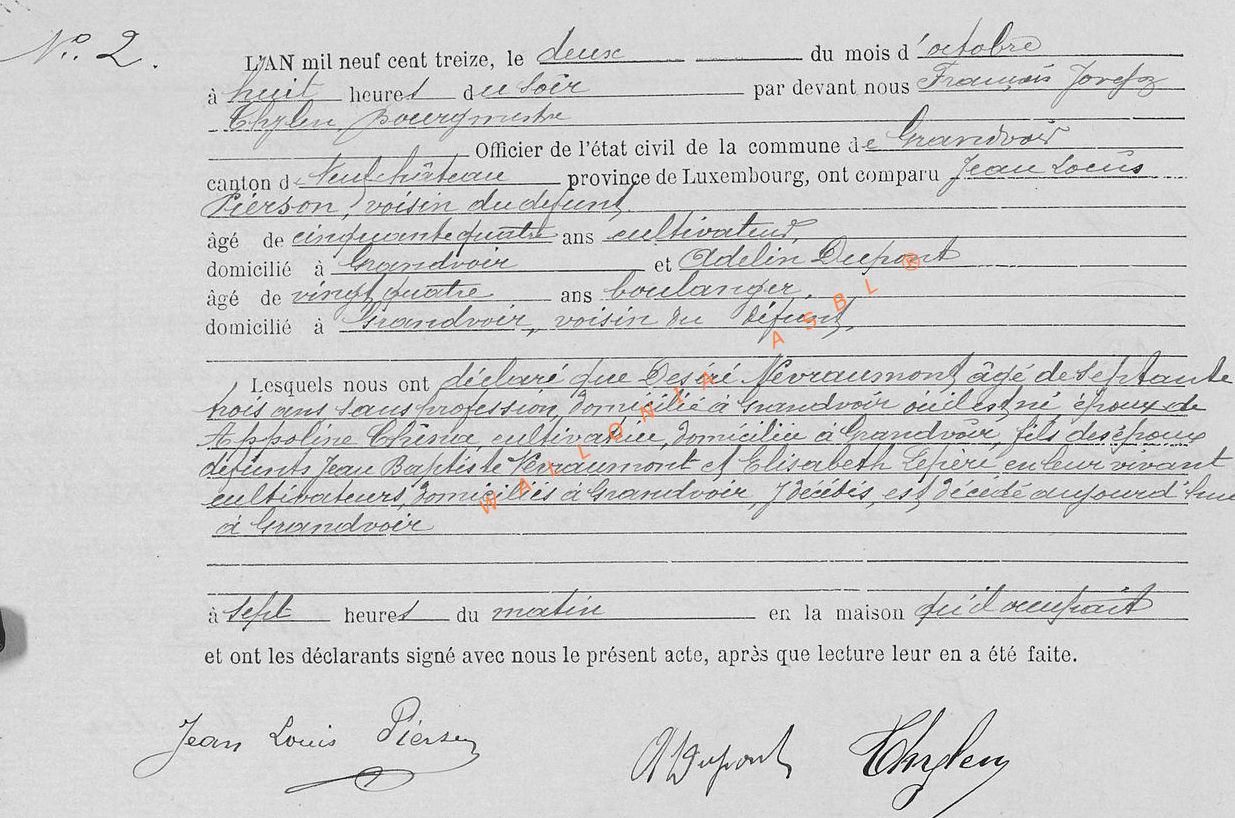 N°. 2.
L'AN mil neuf cent treize, le deux du mois d'octobre
à huit heures du Soir par devant nous François Joseph
Thylen, bourgmestre
Officier de l'état civil de la commune de Grandvoir
canton de Neufchâteau province de Luxembourg, ont comparu Jean Louis
Pierson, voisin du défunt
âgé de cinquante quatre ans cultivateur,
domicilié à Grandvoir et Adelin Dupont
âgé de vingt quatre ans boulanger,
domicilié à Grandvoir, voisin du défunt,
Lesquels nous ont déclaré que Désiré Nevraumont, âgé de septante
trois ans sans profession, domicilié à Grandvoir où il est né, époux de
Appoline cultivatrice, domiciliée à Grandvoir, fils des époux
défunts Jean Baptiste Nevraumont et Elisabeth Lepère, en leur vivant
cultivateurs, domiciliés à Grandvoir, y décédés, est décédé aujourd'hui
à Grandvoir
à sept heures du matin en la maison qu'il occupait
et ont les déclarants signé avec nous le présent acte, après que lecture leur en a été faite.
Jean Louis Pierson ADupont Thylen
WALLONIA ASBL ®